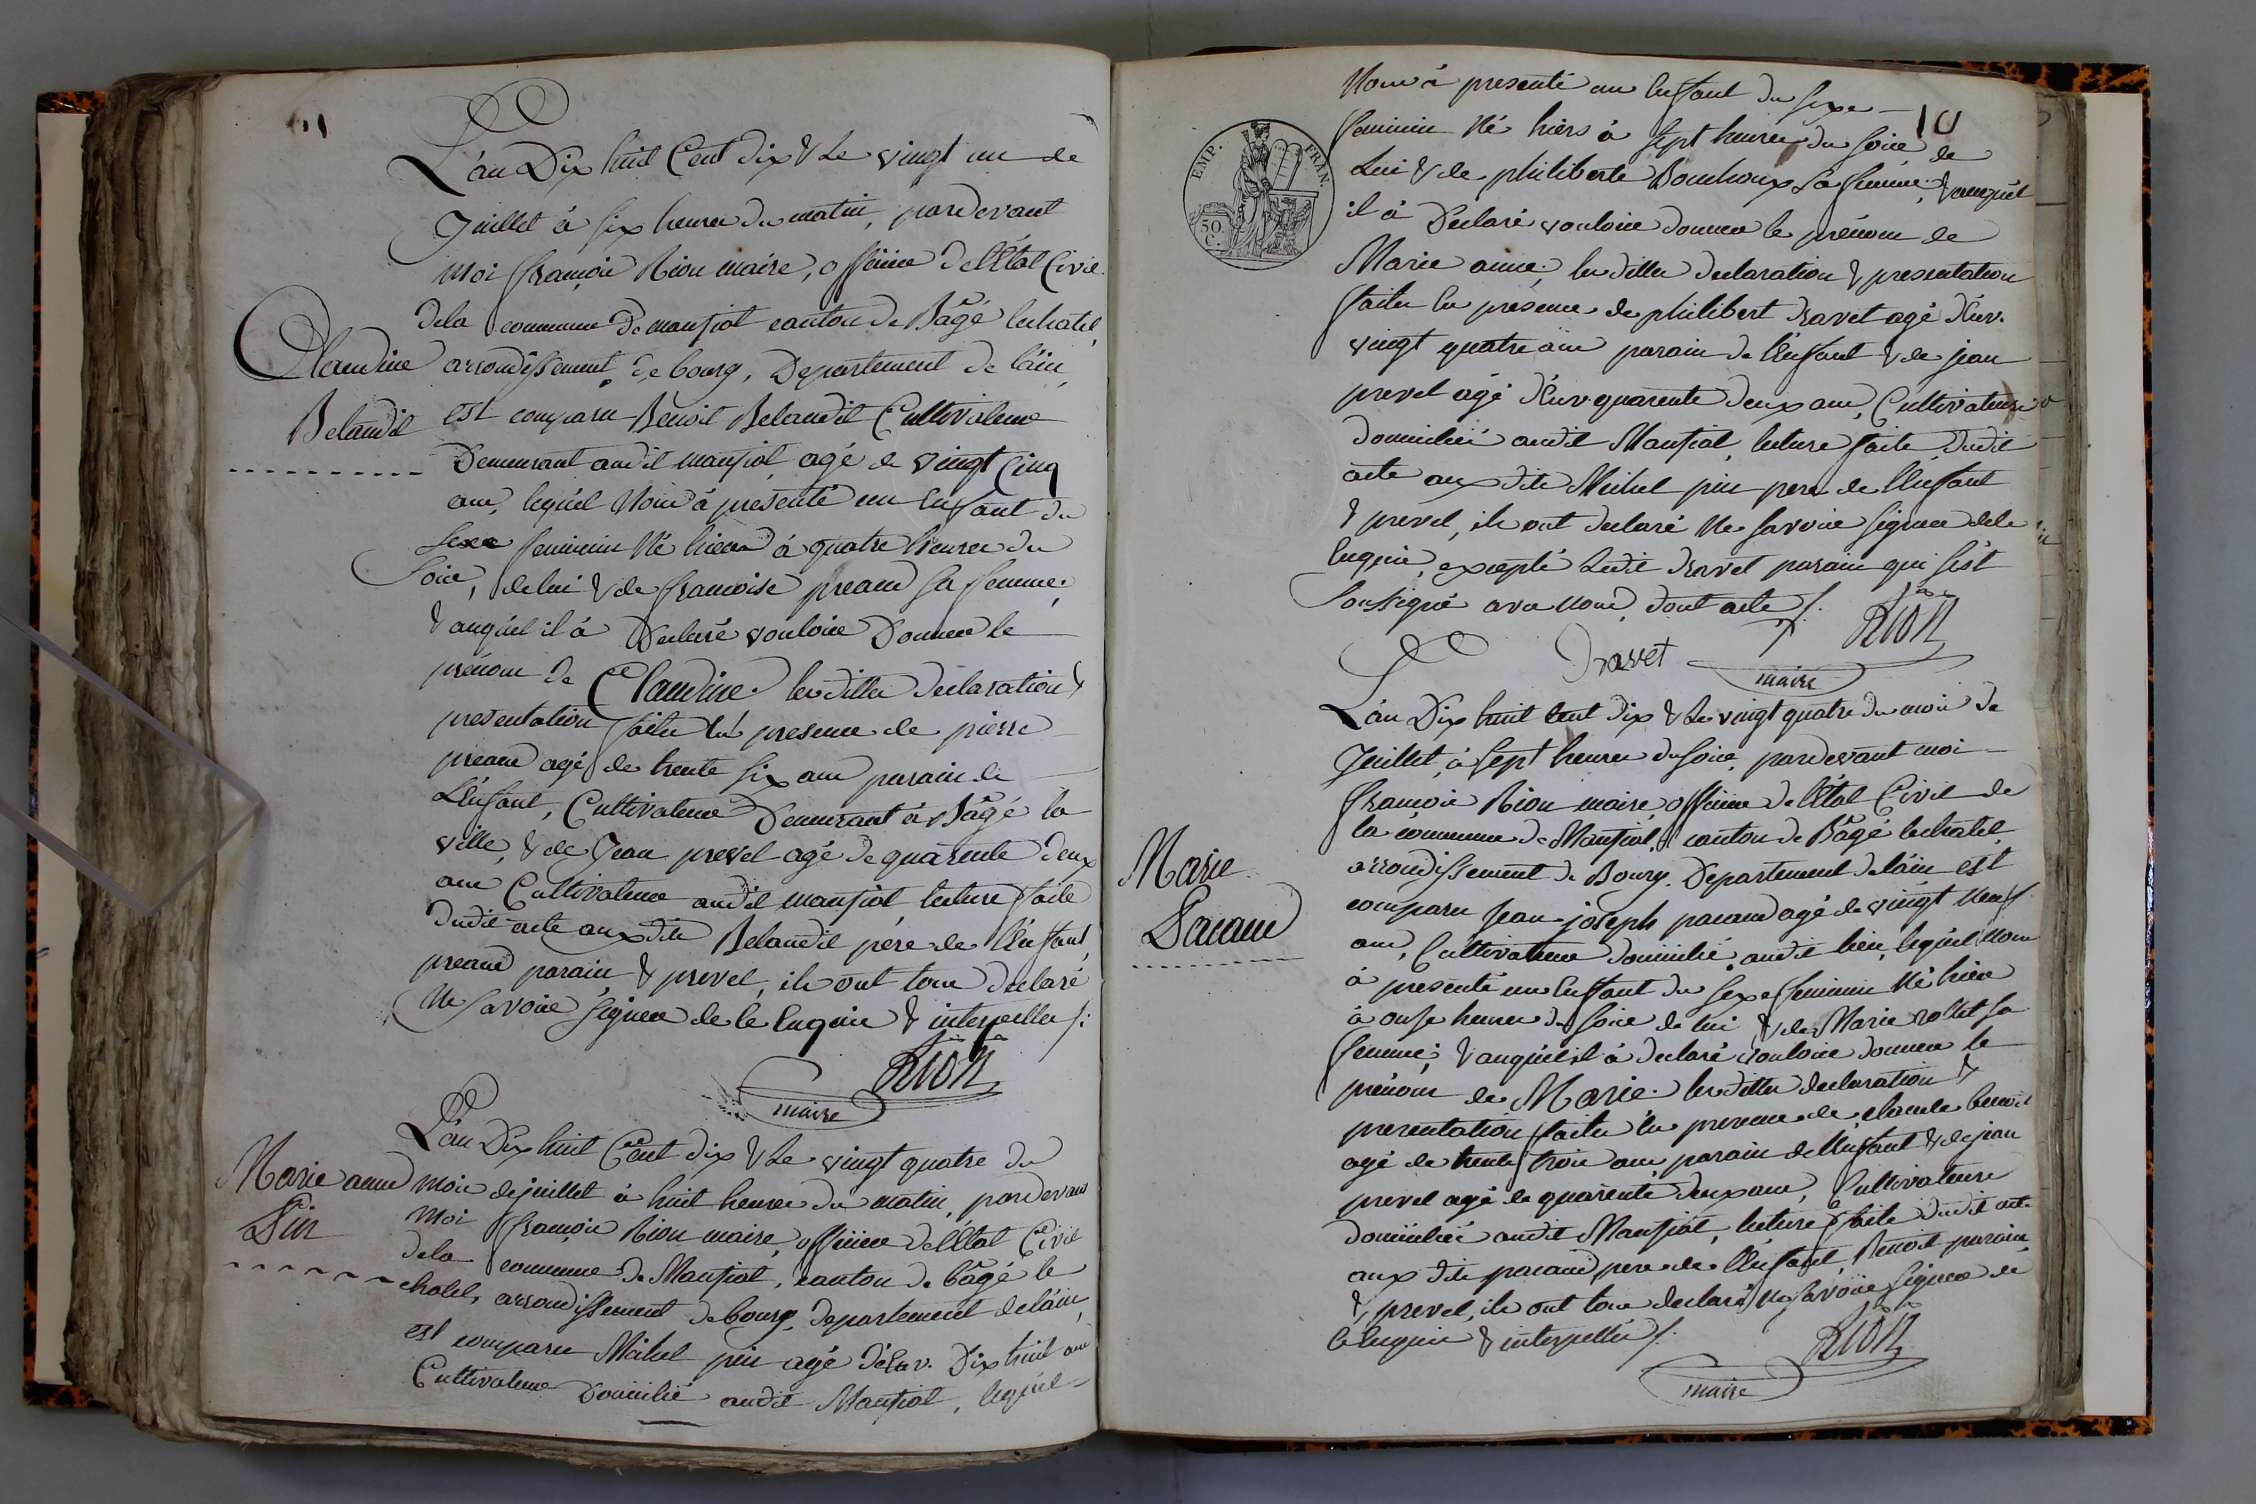 L'an Dix huit Cent dix & Le vingt un de
Juillet à six heures du matin, pardevant
moi françois Rion maire, officier de l'État Civil
de la commune de manziat canton de Bâgé lechatel,
Claudine
Belaudit
arrondissement de bourg, Departement de l'ain,
est comparu Benoit Belaudit Cultivateur
Demeurant audit manziat agé de vingt Cinq
ans, lequel Nous à presenté un Enfant du
sexe feminin Né hier à quatre heures du
soir, de lui & de francoise preaud sa femme,
& auquel il à Declaré vouloir Donner le
prénom de Claudine. les dittes declaration &
presentation faites en presence de pierre
preaud agé de trente six ans parain de
L'enfant, Cultivateur Demeurant à Bâgé la
ville, & de Jean prevel agé de quarente deux
ans Cultivateur audit manziat lecture faite
dudit acte aux dits Belaudit pére de l'Enfant,
preaud parain, & prevel, ils ont tous declaré
Ne savoir signer de ce Enquis & interpellés ./.
Rion
maire
Marie anne
Pin
L'an Dix huit Cent dix & Le vingt quatre du
mois de juillet à huit heures du matin, pardevant
moi françois Rion maire, officier de l'État Civil
de la commune de Manziat, canton de bâgé le
chatel, arrondissement de bourg, departement de l'ain,
est comparu Michel pin agé d'Env. Dix huit ans
Cultivateur Domicilié audit Manziat, lequel
10
Nous à presenté un Enfant du sexe
feminin Né hiers à sept heures du soir, de
Lui & de philiberte Bouchoux sa femme, & auquel
il à Declaré vouloir donner le prénom de
EMP. FRAN.
50 C.
Marie anne, les dittes declaration & presentation
faites en presence de philibert Dravet agé d'Env.
vingt quatre ans parain de l'Enfant & de jean
prevel agé d'Env quarente deux ans, Cultivateurs
domiciliés audit Manziat, lecture faite dudit
acte aux dits Michel pin pere de l'Enfant
& prevel, ils ont declaré Ne savoir signer de ce
Enquis, excepté Ledit Dravet parain qui s'est
soussigné avec nous, dont acte ./.
Rion
Dravet
maire
L'an Dix huit cent dix & Le vingt quatre du mois de
Juillet, à sept heures du soir, pardevant moi
françois Rion maire officier de l'État Civil de
la commune de Manziat, canton de Bâgé lechatel,
Marie
Pacaud
arrondissement de Bourg. Departement de l'ain est
comparu Jean-joseph pacaud agé de vingt Neuf
ans, Cultivateur domicilié audit lieu, lequel Nous
à presenté un Enfant du sexe feminin Né hier
à onze heures du soir de lui & de Marie rollet sa
femme, & auquel il à declaré vouloir donner le
prénom de Marie. les dittes declaration &
presentation faites en presence de claude benoit
agé de trente trois ans, parain de l'Enfant & de jean
prevel agé de quarente deux ans, Cultivateurs
domiciliés audit Manziat, lecture faite dudit acte
aux dits pacaud pere de l'Enfant, Benoit parain,
& prevel, ils ont tous declaré Ne savoir signer de
ce Enquis & interpellés ./.
Rion
maire